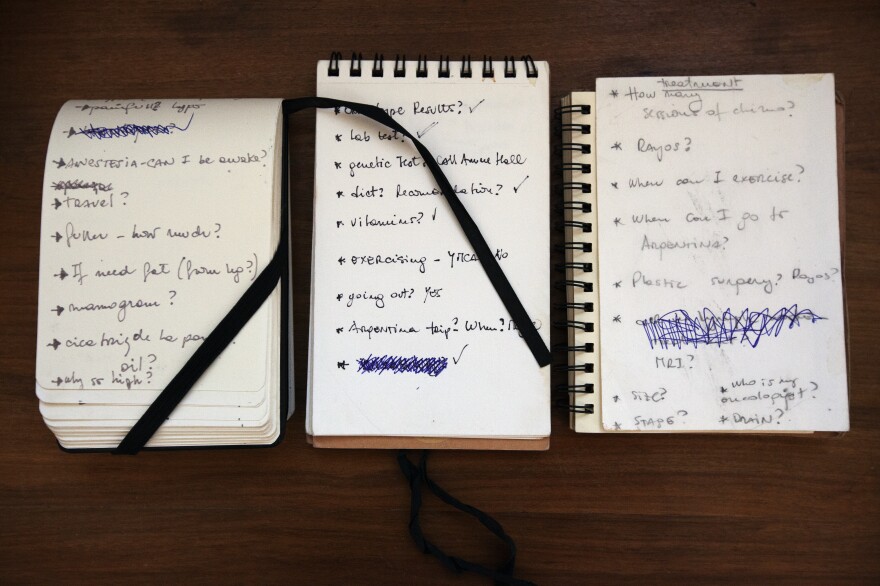 ANESTESIA-CAN I be awake?
travel?
fuller - how much?
If need fat (from lip?)
mamogram?
cicatriz de la
oil?
why so high?
Results? ✓
* lab test? ✓
* genetic Test Call Anne Hall
* diet? Recomendation? ✓
* vitamins? ✓
* exercising -
* going out? Yes
* Argentina trip? When?
* ✓
treatment
* How many
sessions of chimo?
* Rayos?
* when can I exercise?
* When can I go to
Argentina?
* Plastic surgery? Rayos?
*
MRI?
* SIZE?
* who is my
oncologist?
* STAGE?
* DRAIN?